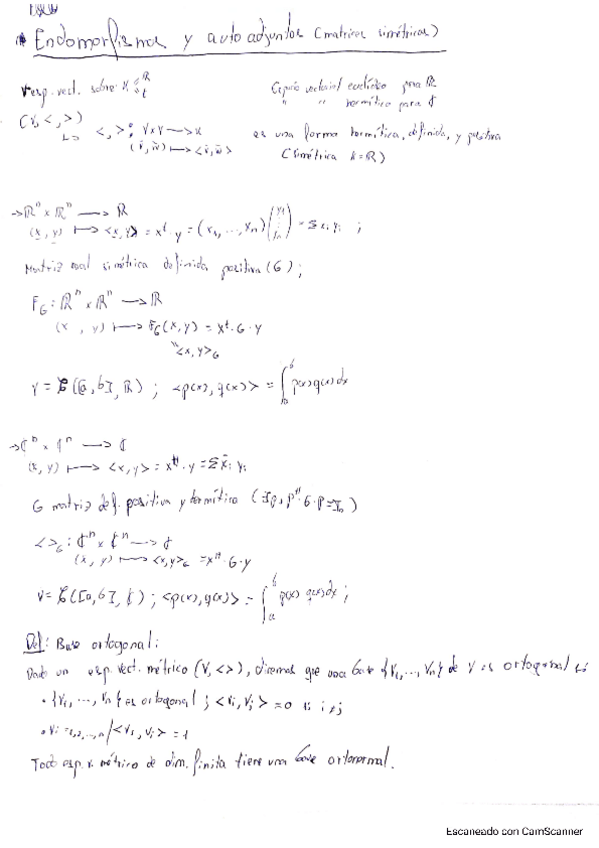 * Endomorfismos y autoadjuntos (matrices simétricas)
V esp. vect. sobre K ℝ ₵ Espacio vectorial euclídeo para ℝ
" " hermítico para ₵
(V, < , >)
↳ < , >: V×V → K es una forma hermítica, definida, y positiva
(v̄, w̄) ↦ <v̄, w̄> (simétrica K=ℝ)
→ ℝⁿ × ℝⁿ → ℝ
(x, y) ↦ <x, y> = xᵗ·y = (x₁, ..., xₙ) (y₁ ⋮ yₙ) = Σ xᵢ yᵢ ;
Matriz real simétrica definida positiva (G);
F_G : ℝⁿ × ℝⁿ → ℝ
(x , y) ↦ F_G(x, y) = xᵗ·G·y
" <x, y>_G
V = 𝒞([a, b], ℝ) ; <p(x), q(x)> = ∫ₐᵇ p(x) q(x) dx
→ ₵ⁿ × ₵ⁿ → ₵
(x, y) ↦ <x, y> = xᴴ·y = Σ x̄ᵢ yᵢ
G matriz def. positiva y hermítica (∃ p, pᴴ·G·p = Iₙ)
< >_G : ₵ⁿ × ₵ⁿ → ₵
(x, y) ↦ <x, y>_G = xᴴ·G·y
V = 𝒞([a, b], ₵) ; <p(x), q(x)> = ∫ₐᵇ p(x) q(x) dx ;
Def: Base ortogonal:
Dado un esp. vect. métrico (V, <>), diremos que una base {v₁, ..., vₙ} de V es ortogonal si
• {v₁, ..., vₙ} es ortogonal ; <vᵢ, vⱼ> = 0 si i ≠ j
• ∀i = 1, 2, ..., n / <vᵢ, vᵢ> = 1
Todo esp. v. métrico de dim. finita tiene una base ortonormal.
Escaneado con CamScanner